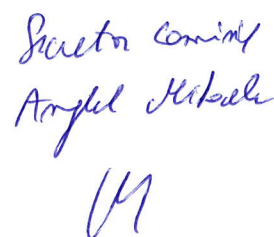 Secretar Comisie
Anghel Mihaela